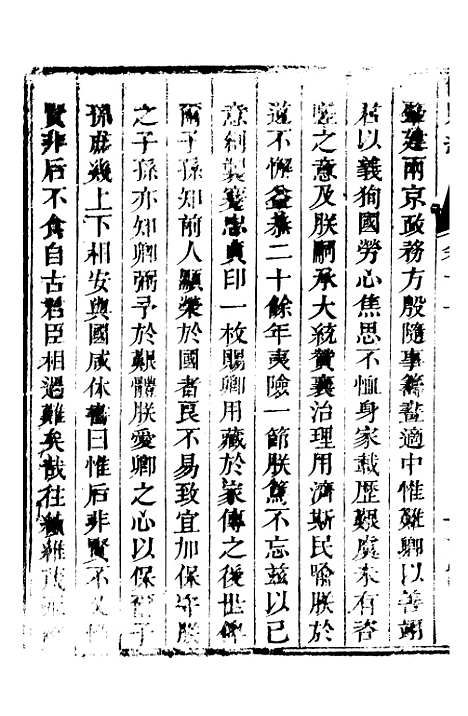 肇建兩京政務方殷隨事籌畫適中惟難卿以善翊
君以義徇國勞心焦思不恤身家載歷艱虞未有咨
之意及朕嗣承大統贊襄治理用濟斯民喻朕於
道不懈益恭二十餘年夷險一節朕篤不忘茲以已
意創製忠貞印一枚賜卿用藏於家傳之後世俾
爾子孫知前人顯榮於國者良不易致宜加保守朕
之子孫亦知卿弼予於艱體朕愛卿之心以保卿子
孫庶幾上下相安與國咸休書曰惟后非賢不乂惟
賢非后不食自古君臣相遇難矣哉往